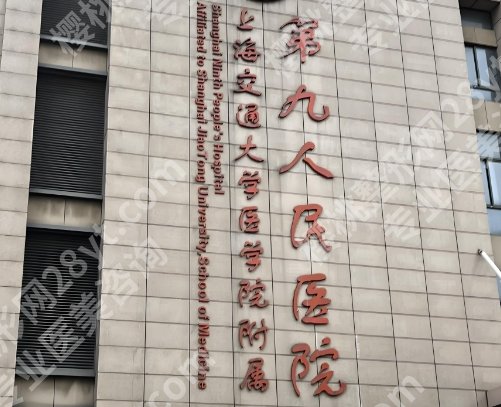 第九人民医院
上海交通大学医学院附属
Shanghai Ninth People's Hospital
Affiliated to Shanghai JiaoTong University, School of Medicine
樱桃
形网28yt.com
专业医美咨询